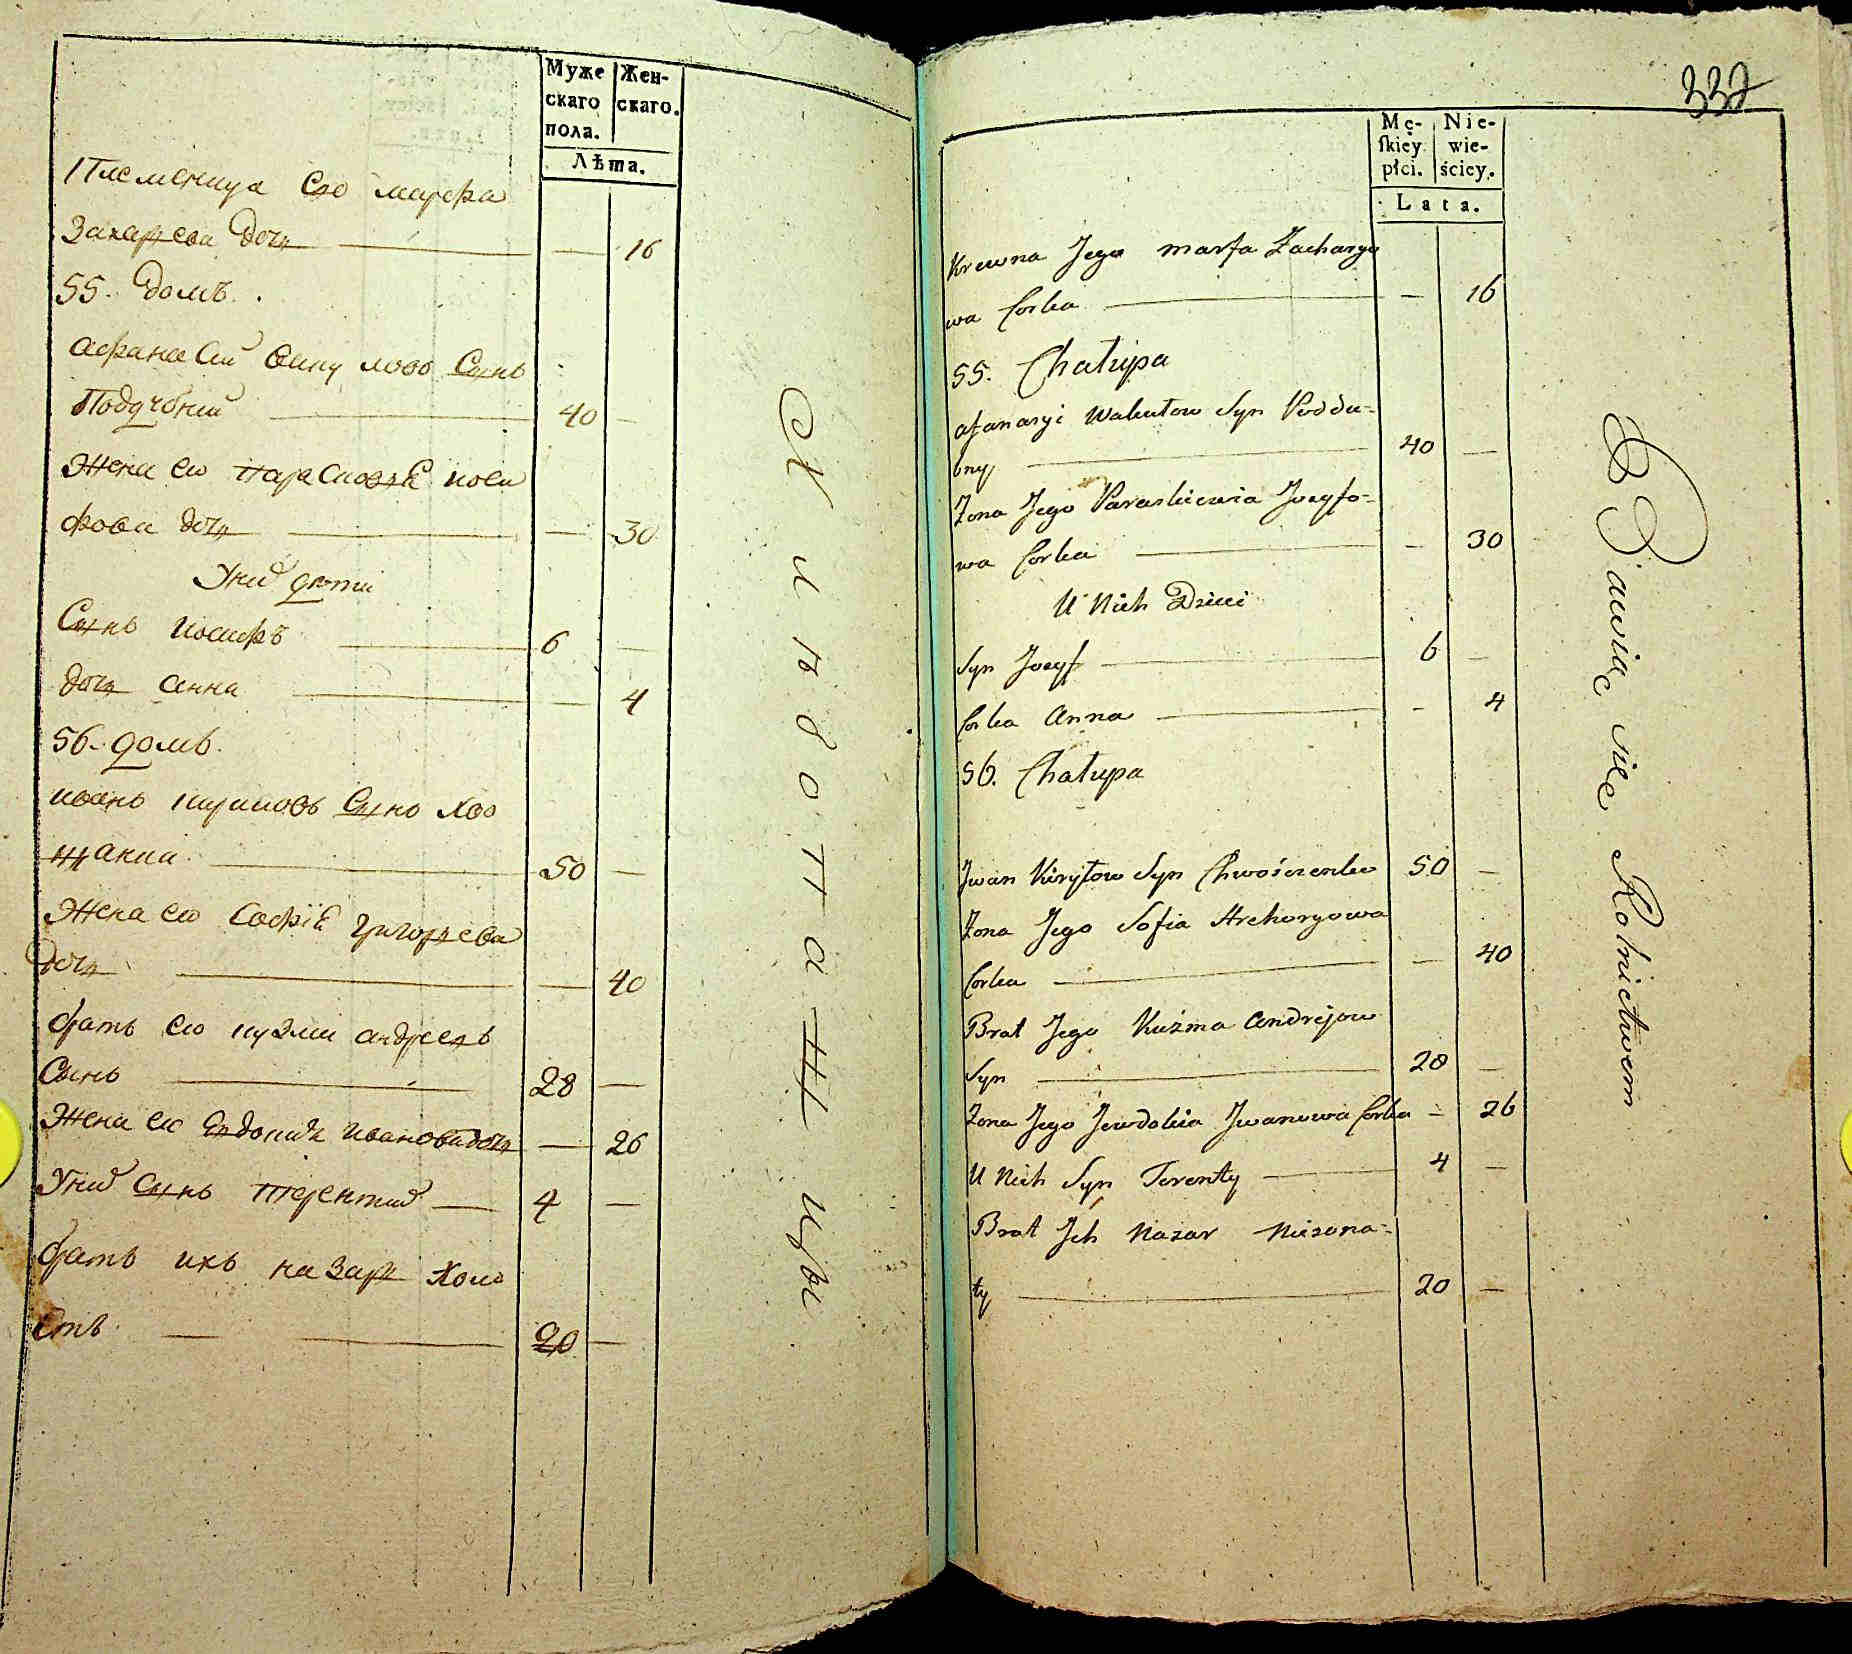 Муже Жен-
скаго скаго.
пола.
Лѣта.
Племенница Его марфа
Захарьева дочь — — 16
55. домъ.
афанасий Вику лово Сынъ
Поддубний — 40 —
Жена ею Парасковья иоси
фова дочь — — 30
У них дѣти
Сынъ Иосифъ — 6 —
дочь анна — — 4
56. домъ.
иванъ кириловъ Сынъ Хво
щенки — 50 —
Жена ею Софія григорьева
дочь — — 40
братъ ею кузма андреевъ
Сынъ — 28 —
Жена ею Евдокия Иванова дочь — 26
У них Сынъ терентий — 4 —
братъ ихъ назаръ Холо
стъ — 20 —
337
Mę- Nie-
skiey wie-
płci. ściey.
Lata.
Krewna Jego marfa Zacharyo
wa Corka — — 16
55. Chałupa
afanasyi Wakułow Syn Poddu-
bny — 40 —
Żona Jego Paraskiewia Jozyfo-
wa Corka — — 30
U Nich Dzieci
Syn Jozyf — 6 —
Corka Anna — — 4
56. Chałupa
Jwan Kiryłow Syn Chwoszczenko 50 —
Żona Jego Sofia Hrehoryowa
Corka — — 40
Brat Jego Kuźma Andrejow
Syn — 28 —
Żona Jego Jewdokia Jwanowa Corka — 26
U Nich Syn Terenty — 4 —
Brat Jch Nazar Nieżona-
ty — 20 —
Bawiąc się Rolnictwem